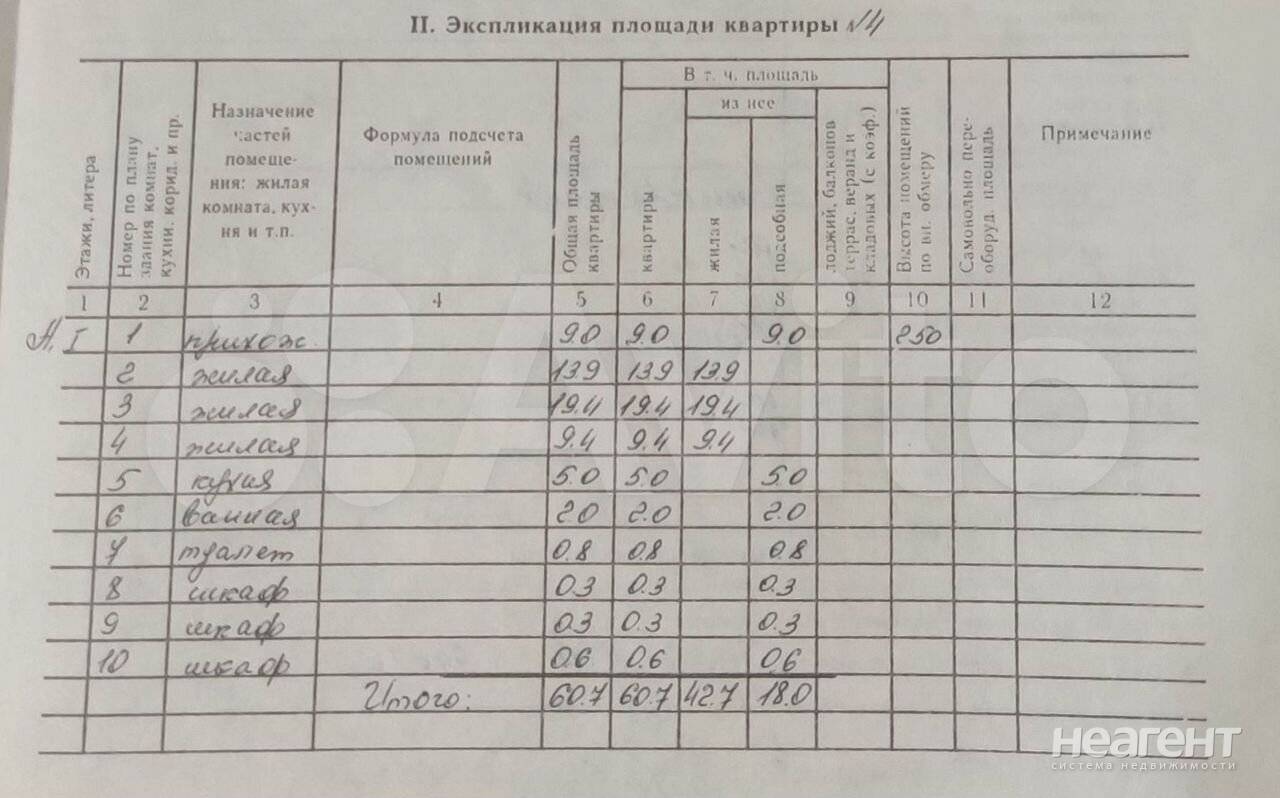 II. Экспликация площади квартиры №4
Этажи, литера
Номер по плану здания комнат. кухни. корид. и пр.
Назначение частей помеще-ния: жилая комната, кух-ня и т.п.
Формула подсчета помещений
Общая площадь квартиры
В т. ч. площадь
квартиры
из нее
жилая
подсобная
лоджий, балконов террас, веранд и кладовых (с коэф.)
Высота помещений по вн. обмеру
Самовольно пере-оборуд. площадь
Примечание
1 2 3 4 5 6 7 8 9 10 11 12
А, I 1 прихож. 9.0 9.0 9.0 250
2 жилая 13.9 13.9 13.9
3 жилая 19.4 19.4 19.4
4 жилая 9.4 9.4 9.4
5 кухня 5.0 5.0 5.0
6 ванная 2.0 2.0 2.0
7 туалет 0.8 0.8 0.8
8 шкаф 0.3 0.3 0.3
9 шкаф 0.3 0.3 0.3
10 шкаф 0.6 0.6 0.6
Итого: 60.7 60.7 42.7 18.0
Avito
неагент
система недвижимости